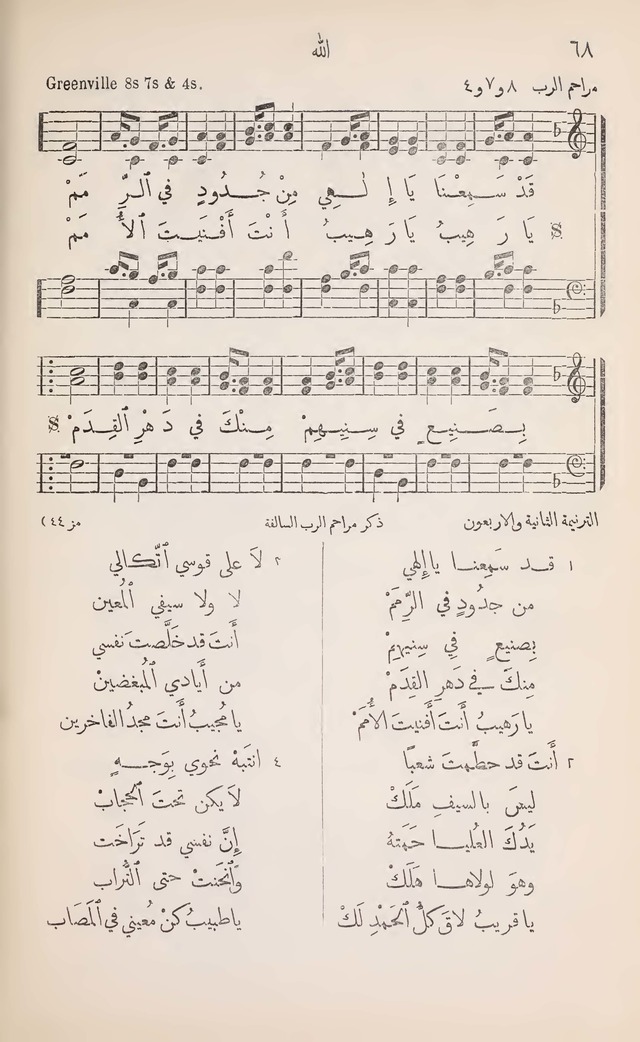 ٦٨
الله
مراحم الرب ٨و٧و٤
Greenville 8s 7s & 4s.
قَدْ سَمِعْنَا يَا إِلٰهِي مِنْ جُدُودٍ فِي ٱلرِّمَمْ
𝄋 يَا رَهِيبُ يَا رَهِيبُ أَنْتَ أَفْنَيْتَ ٱلأُمَمْ
بِصَنِيعٍ فِي سِنِيهِمْ مِنْكَ فِي دَهْرِ ٱلقِدَمْ 𝄋
الترنيمة الثانية والاربعون
ذكر مراحم الرب السالفة
مز ٤٤ )
١ قد سَمِعنا يا إِلهي
من جدُودٍ في الرِّمَمْ
بِصنيعٍ في سِنِيهِمْ
مِنكَ في دَهرِ القِدَمْ
يا رَهيبُ أَنتَ أَفنيتَ الأُمَمْ
٢ أَنتَ قد حطَّمتَ شعبًا
ليسَ بالسيفِ مَلَكْ
يَدُكَ العُليا حَمَتهُ
وهوَ لولاها هَلَكْ
يا قريبُ لاقَ كلُّ ٱلحَمْدِ لَكْ
٢ لاَ على قوسي ٱتّكالي
لا ولا سيفي ٱلْمُعين
أَنتَ قد خَلَّصتَ نفسي
من أَيادي ٱلمُبغضينْ
يا مُجيبُ أَنتَ مجدُ الفاخرين
٤ انتَبِهْ نحوي بِوَجهٍ
لاَ يكن تحتَ ٱلحجابْ
إِنَّ نفسي قد تَرَاخَت
وَٱنْحَنَتْ حتى ٱلتُّراب
يا طبيبُ كنْ مُعيني في ٱلمَصَاب